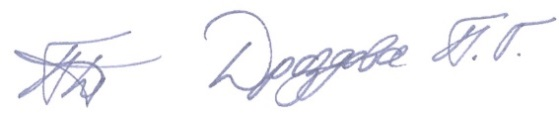 Дроздова Т. Г.